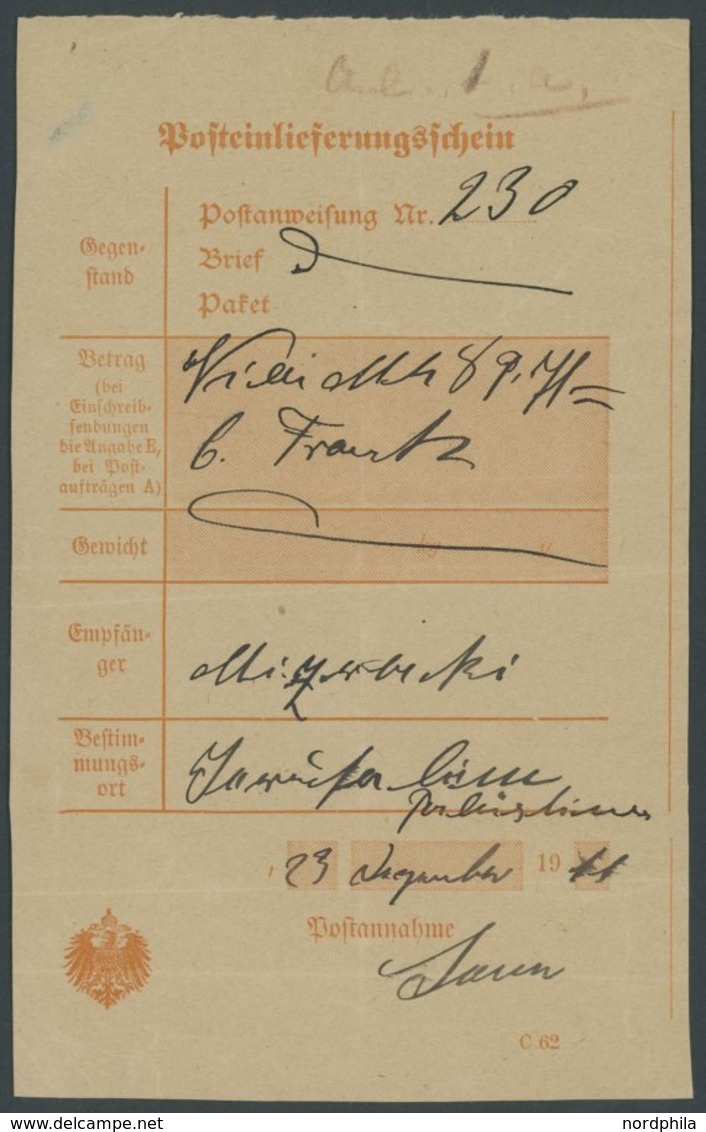 Posteinlieferungsschein
Gegen-
stand
Postanweisung Nr. 230
Brief
Paket
Betrag
(bei
Einschreib-
sendungen
die Angabe E,
bei Post-
aufträgen A)
6. Frank
Gewicht
kg g
Empfän-
ger
Bestim-
mungs-
ort
Jerusalem
Palästina
23 Dezember 1911
Postannahme
C 62
nordphila